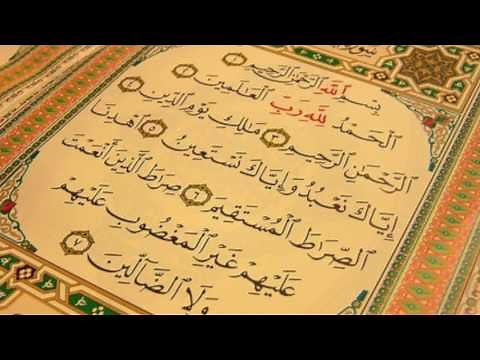 سورة
بِسْمِ ٱللَّهِ ٱلرَّحْمَٰنِ ٱلرَّحِيمِ ١
ٱلْحَمْدُ لِلَّهِ رَبِّ ٱلْعَالَمِينَ ٢
ٱلرَّحْمَٰنِ ٱلرَّحِيمِ ٣ مَالِكِ يَوْمِ ٱلدِّينِ ٤
إِيَّاكَ نَعْبُدُ وَإِيَّاكَ نَسْتَعِينُ ٥ ٱهْدِنَا
ٱلصِّرَاطَ ٱلْمُسْتَقِيمَ ٦ صِرَاطَ ٱلَّذِينَ أَنْعَمْتَ
عَلَيْهِمْ غَيْرِ ٱلْمَغْضُوبِ عَلَيْهِمْ
وَلَا ٱلضَّالِّينَ ٧